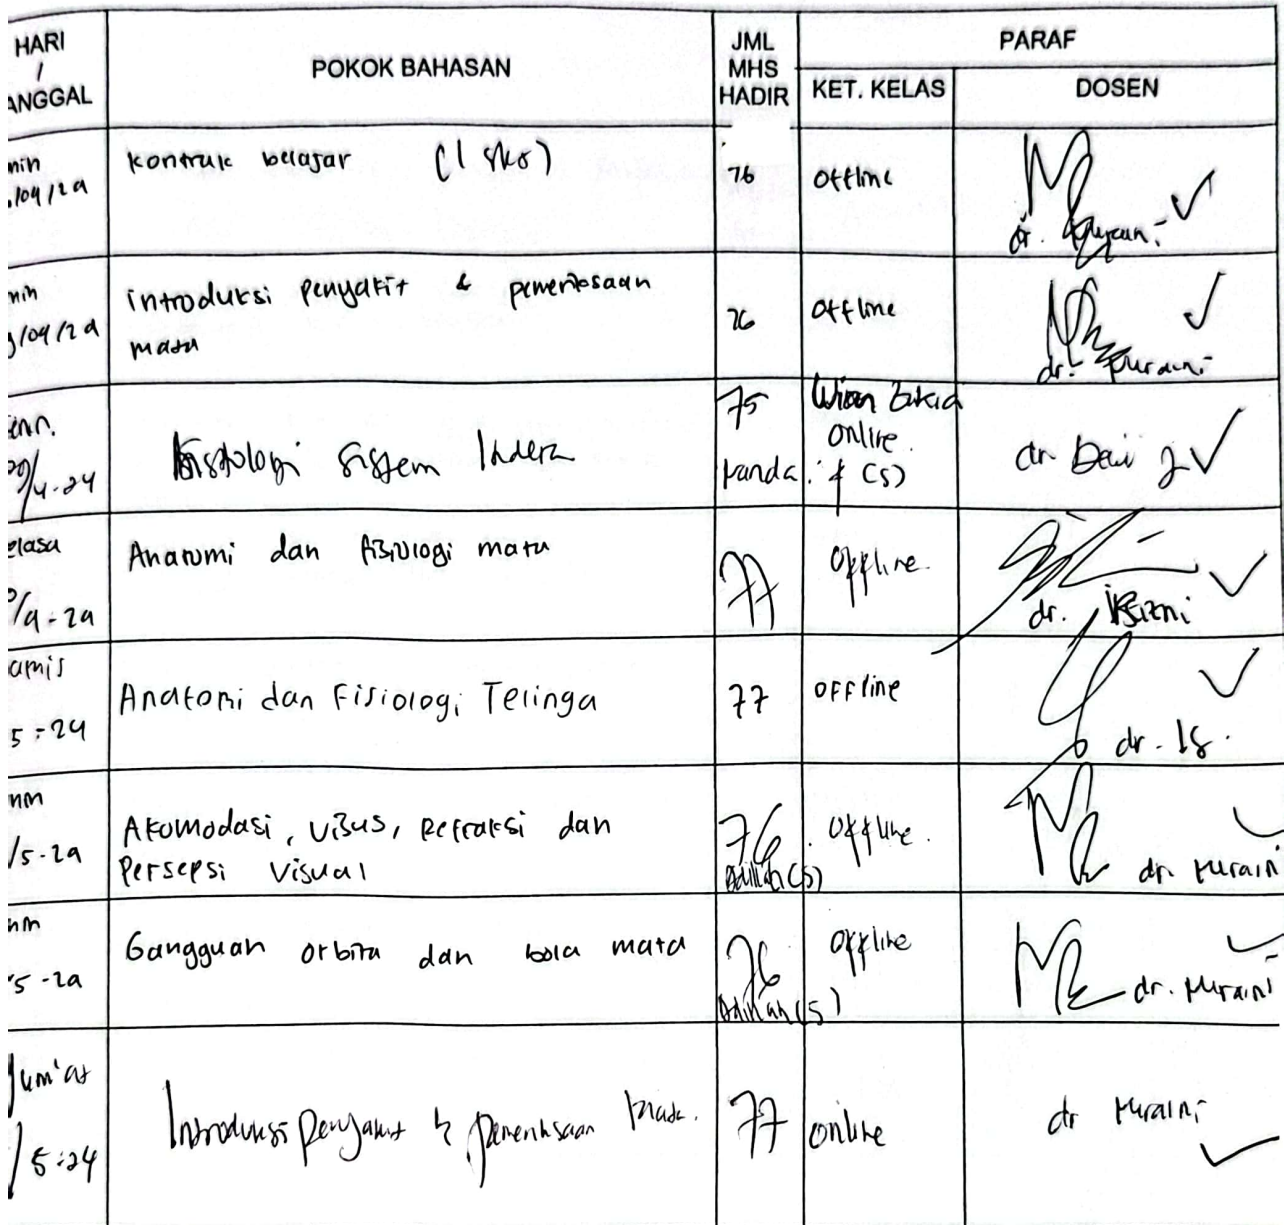 HARI
/
ANGGAL
POKOK BAHASAN
JML
MHS
HADIR
PARAF
KET. KELAS
DOSEN
nin
/04/24
kontrak belajar (1 sks)
76
offline
dr.
nin
/04/24
introduksi penyakit & pemeriksaan
mata
76
offline
dr. Nuraini
enn.
/4-24
Histologi Sistem Indera
75
online
& (S)
dr Dewi
elasa
/4-24
Anatomi dan fisiologi mata
77
offline
dr.
amis
5-24
Anatomi dan Fisiologi Telinga
77
offline
dr. Is.
nin
/5-24
Akomodasi, visus, refraksi dan
Persepsi visual
76
(S)
offline
dr. Nuraini
nin
5-24
Gangguan orbita dan bola mata
76
(S)
offline
dr. Nuraini
Jum'at
/5-24
Introduksi penyakit & pemeriksaan mata.
77
online
dr Nuraini